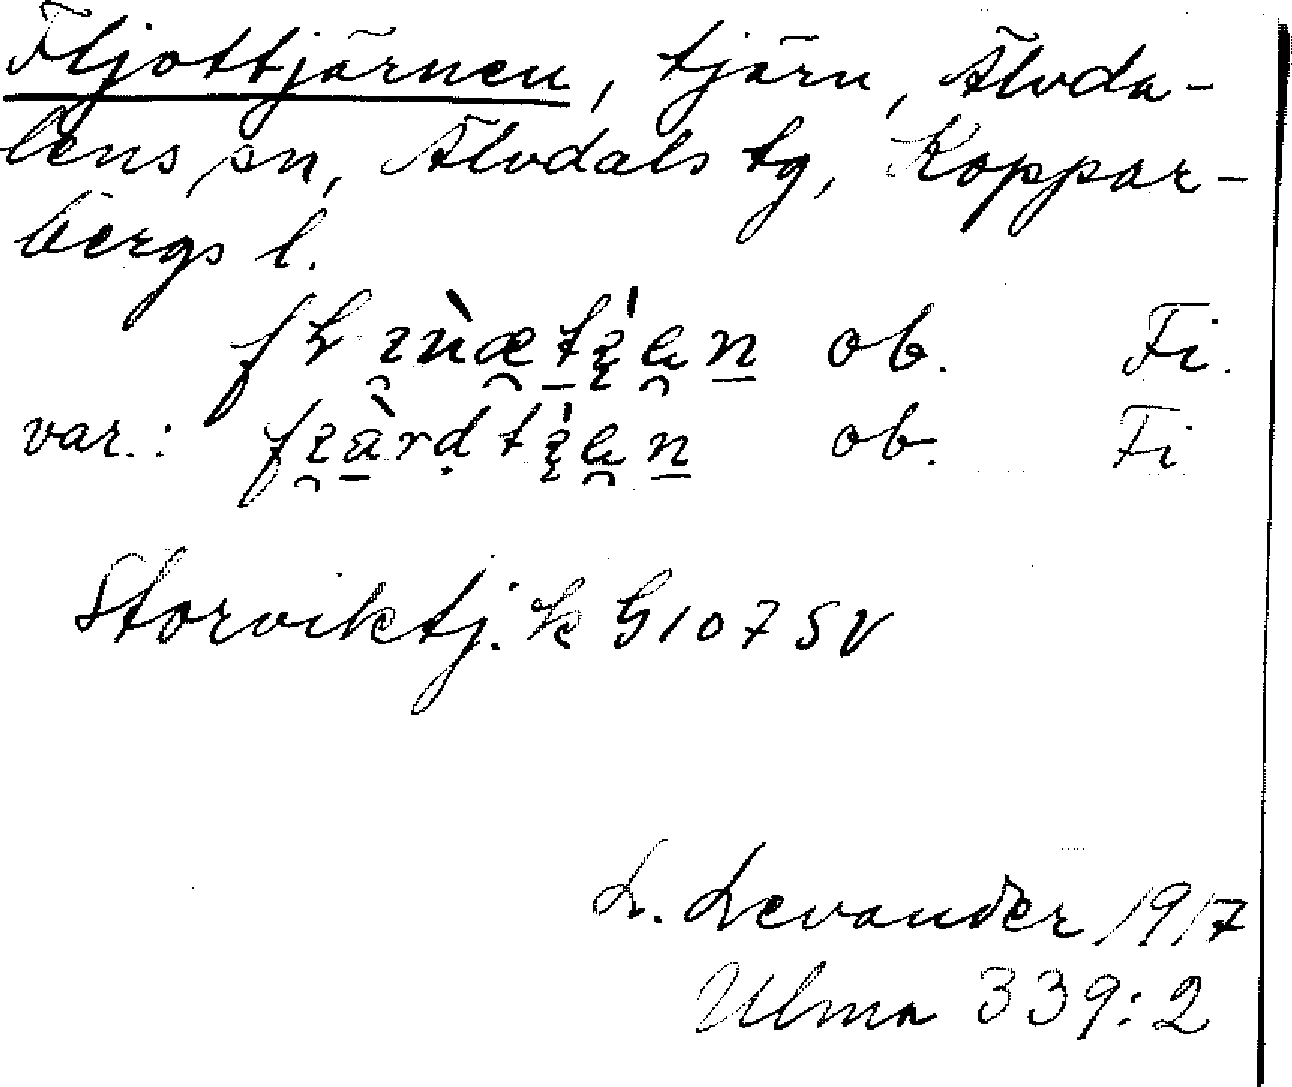 Fljottjärnen, tjärn, Älvda-
lens sn, Älvdals tg, Koppar-
bergs l.
ob. Fi.
var.: ob. Fi
Storviktj. k G107 SV
L. Levander 1917
Ulma 339:2